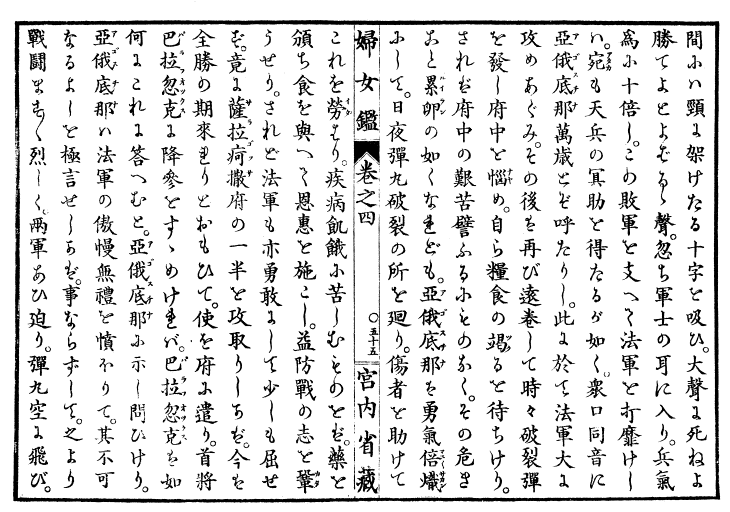 間にハ頸に架けたる十字を吸ひ。大聲に死ねよ
勝てよとよばゝる聲。忽ち軍士の耳に入り。兵氣
爲に十倍し。この敗軍を支へて法軍を打靡けし
ハ。宛も天兵の冥助を得たるが如く。衆口同音に
亞俄底那萬歳とぞ呼たりし。此に於て法軍大に
攻めあぐみ。その後は再び遠卷して時々破裂彈
を發し府中を惱め。自ら糧食の竭るを待ちけり。
されば府中の艱苦譬ふるにものなく。その危き
こと累卵の如くなれども。亞俄底那は勇氣倍熾
にして。日夜彈丸破裂の所を廻り。傷者を助けて
婦女鑑 卷之四 ○五十五 宮内省藏
これを勞はり。疾病飢餓に苦しむものをば。藥を
頒ち食を與へて恩惠を施こし。益防戰の志を鞏
うせり。されど法軍も亦勇敢にして少しも屈せ
ず。竟に薩拉疴撒府の一半を攻取りしかば。今は
全勝の期來れりとおもひて。使を府に遣り。首將
巴拉忽克に降參をすゝめければ。巴拉忽克は如
何にこれに答へむと。亞俄底那に示し問ひけり。
亞俄底那ハ法軍の傲慢無禮を憤ほりて。其不可
なるよしを極言せしかば。事ならずして。之より
戰鬪ます〱烈しく。兩軍あひ迫り。彈丸空に飛び。